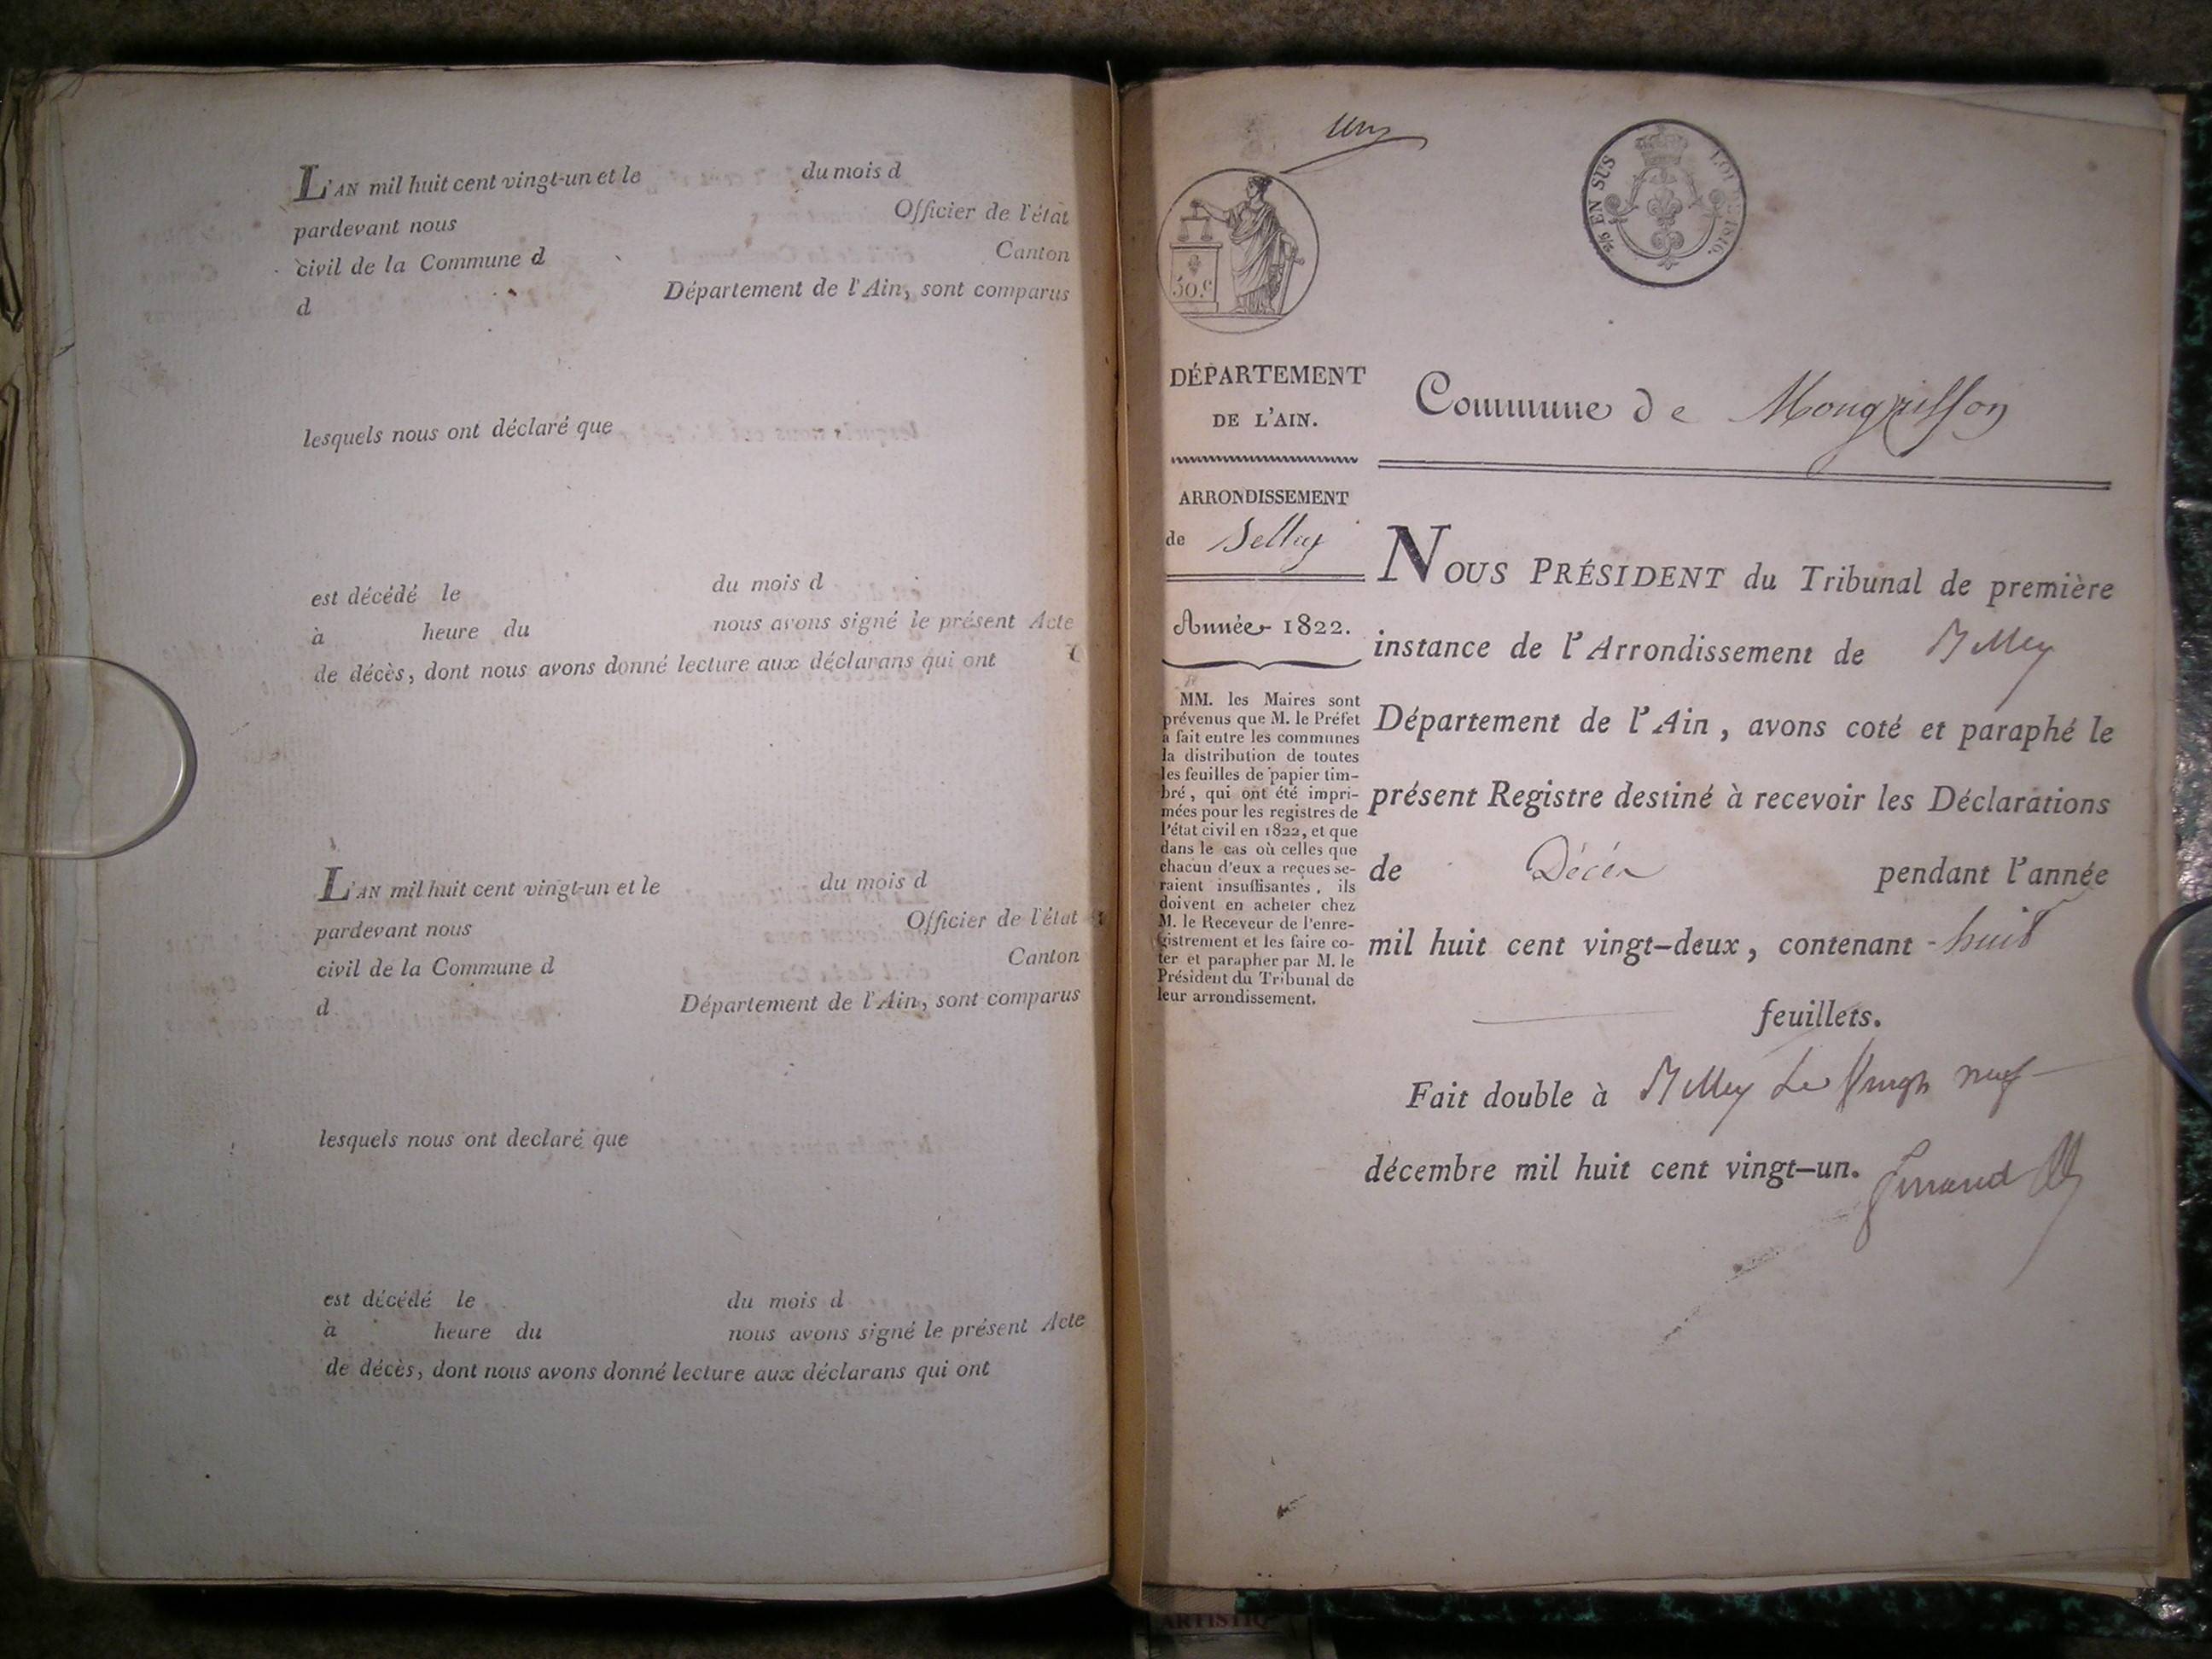 L'AN mil huit cent vingt-un et le du mois d
pardevant nous Officier de l'état
civil de la Commune d Canton
d Département de l'Ain, sont comparus
lesquels nous ont déclaré que
est décédé le du mois d
à heure du nous avons signé le présent Acte
de décès, dont nous avons donné lecture aux déclarans qui ont
L'AN mil huit cent vingt-un et le du mois d
pardevant nous Officier de l'état
civil de la Commune d Canton
d Département de l'Ain, sont comparus
lesquels nous ont declaré que
est décédé le du mois d
à heure du nous avons signé le présent Acte
de décès, dont nous avons donné lecture aux déclarans qui ont
un
50.c
EN SUS
1816.
DÉPARTEMENT
DE L'AIN.
ARRONDISSEMENT
de Belley
Année 1822.
MM. les Maires sont
prévenus que M. le Préfet
a fait entre les communes
la distribution de toutes
les feuilles de papier tim-
bré, qui ont été impri-
mées pour les registres de
l'état civil en 1822, et que
dans le cas où celles que
chacun d'eux a reçues se-
raient insuffisantes, ils
doivent en acheter chez
M. le Receveur de l'enre-
gistrement et les faire co-
ter et parapher par M. le
Président du Tribunal de
leur arrondissement.
Commune de Mongrisson
NOUS PRÉSIDENT du Tribunal de première
instance de l'Arrondissement de Belley
Département de l'Ain, avons coté et paraphé le
présent Registre destiné à recevoir les Déclarations
de Décès pendant l'année
mil huit cent vingt-deux, contenant - huit
feuillets.
Fait double à Belley Le Vingt neuf
décembre mil huit cent vingt-un.
ARTISTIQ